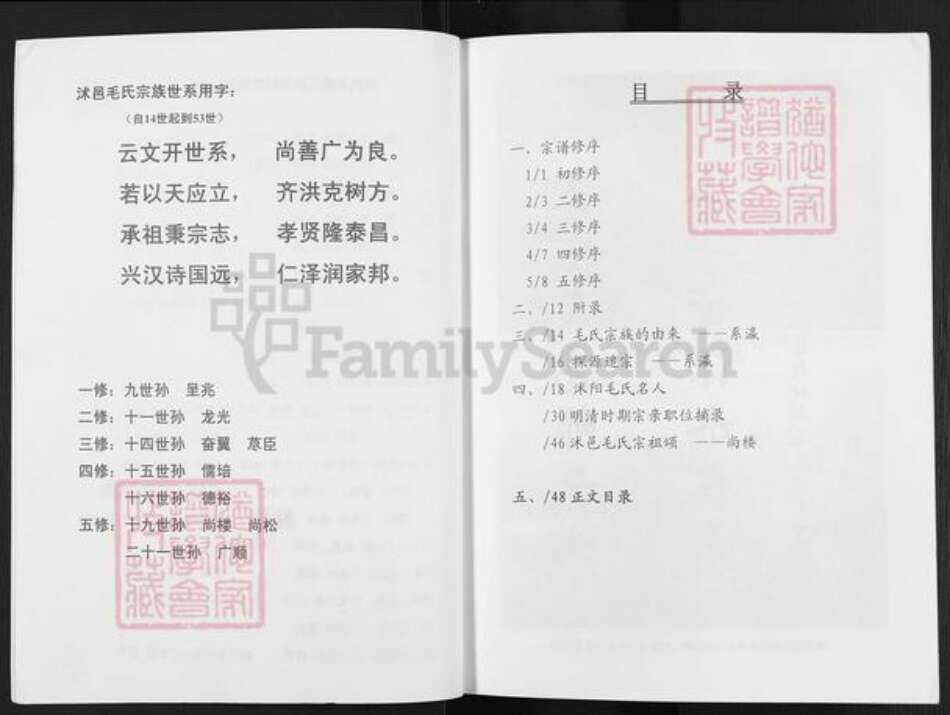 沭邑毛氏宗族世系用字：
（自14世起到53世）
云文开世系， 尚善广为良。
若以天应立， 齐洪克树方。
承祖秉宗志， 孝贤隆泰昌。
兴汉诗国远， 仁泽润家邦。
一修：九世孙 呈兆
二修：十一世孙 龙光
三修：十四世孙 奋翼 荩臣
四修：十五世孙 儒培
十六世孙 德裕
五修：十九世孙 尚楼 尚松
二十一世孙 广顺
目 录
一、宗谱修序
1/1 初修序
2/3 二修序
3/4 三修序
4/7 四修序
5/8 五修序
二、/12 附录
三、/14 毛氏宗族的由来 ——系瀛
/16 探源追宗 ——系瀛
四、/18 沭阳毛氏名人
/30 明清时期宗亲职位摘录
/46 沭邑毛氏宗祖颂 ——尚楼
五、/48 正文目录
FamilySearch
犹他家
谱学会
收藏
犹他家
谱学会
收藏